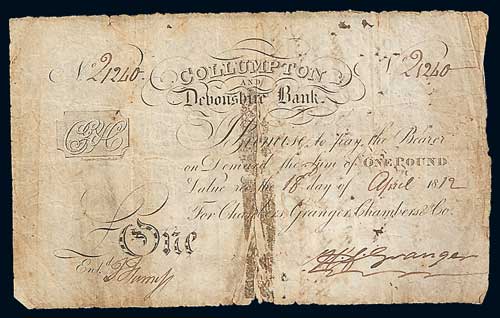 No. 21240. COLLUMPTON No. 21240
AND
Devonshire Bank.
I Promise to Pay the Bearer
on Demand the Sum of ONE POUND
Value rec.d the 18 day of April 1812
For Granger, Chambers & Co.
£ One
Ent.d
Granger